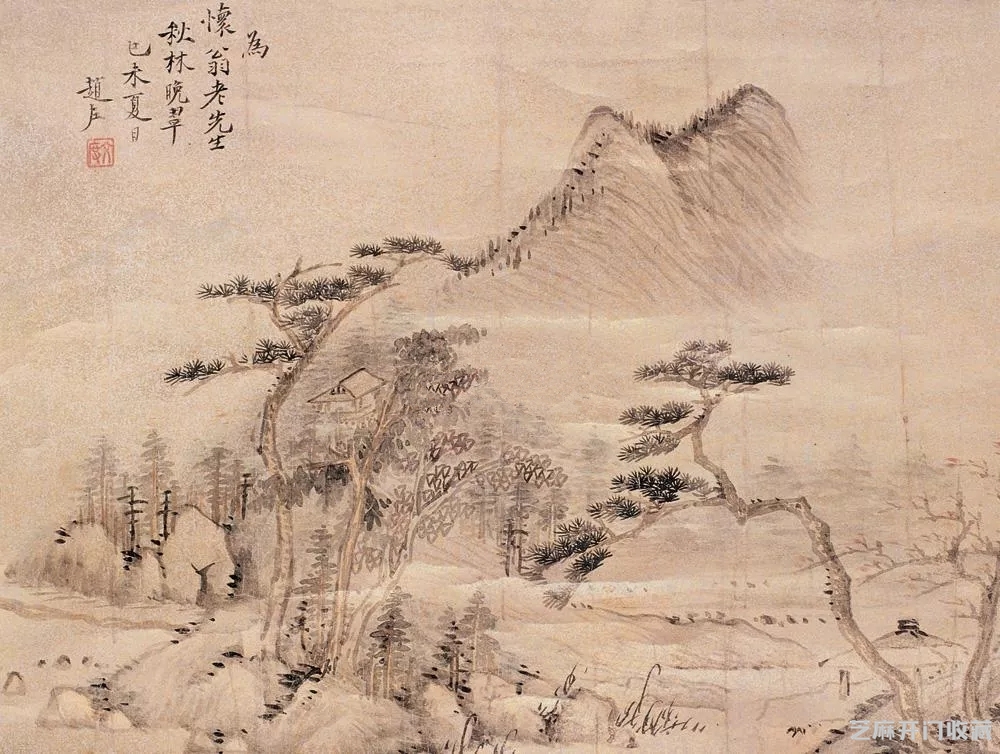 為
懷翁老先生
秋林晚翠
己未夏日
趙左
文度
芝麻开门收藏